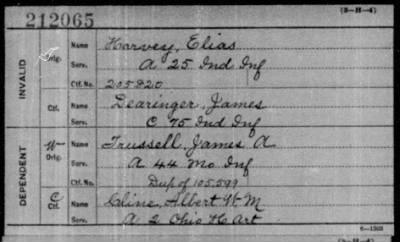 (3-H-4)
212065
INVALID
Orig. Name Harvey, Elias
Serv. A 25 Ind Inf
Ctf. No. 205820
Ctf. Name Dearinger, James
Serv. C 75 Ind Inf
DEPENDENT
W Orig. Name Trussell, James A
Serv. A 44 Mo Inf
Ctf. No. Dup of 105,599
C Ctf. Name Cline, Albert W M
Serv. A 2 Ohio H Art